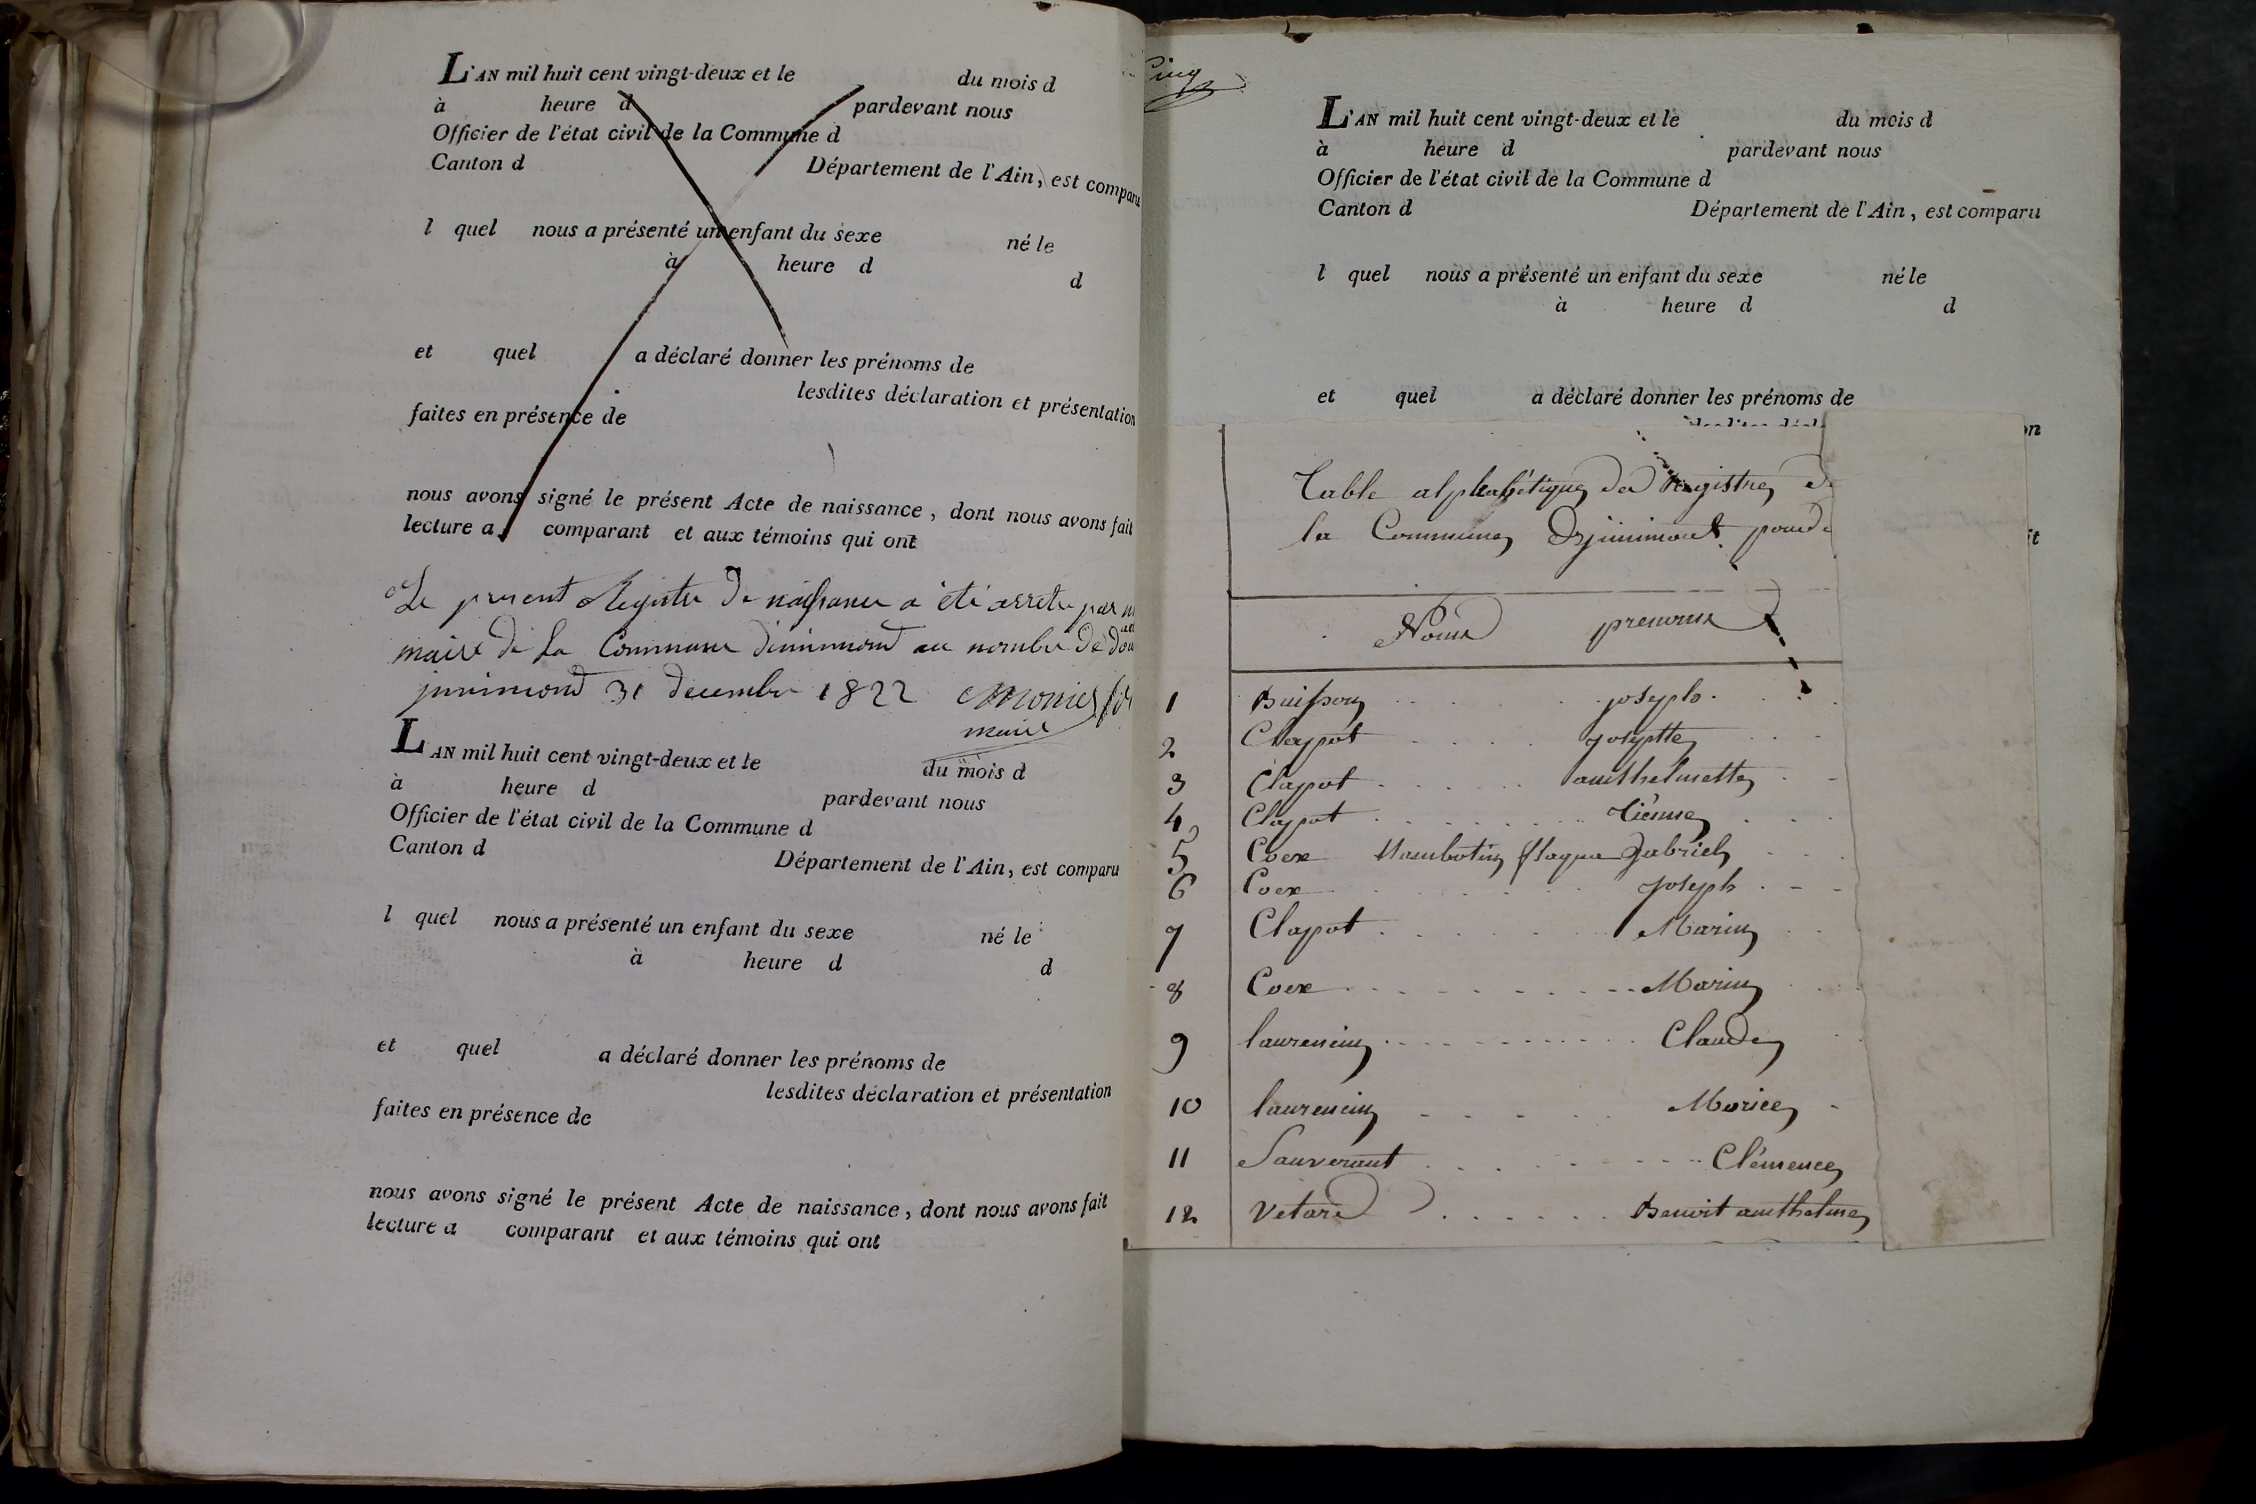 L'AN mil huit cent vingt-deux et le du mois d
à heure d pardevant nous
Officier de l'état civil de la Commune d
Canton d Département de l'Ain, est comparu
l quel nous a présenté un enfant du sexe né le
à heure d d
et quel a déclaré donner les prénoms de
lesdites déclaration et présentation
faites en présence de
nous avons signé le présent Acte de naissance, dont nous avons fait
lecture a comparant et aux témoins qui ont
Le present Registre de naissance a été arreté par
maire de la Commune d'inimond au nombre de
jnnimond 31 decembre 1822 Monier
maire
L'AN mil huit cent vingt-deux et le du mois d
à heure d pardevant nous
Officier de l'état civil de la Commune d
Canton d Département de l'Ain, est comparu
l quel nous a présenté un enfant du sexe né le
à heure d d
et quel a déclaré donner les prénoms de
lesdites déclaration et présentation
faites en présence de
nous avons signé le présent Acte de naissance, dont nous avons fait
lecture a comparant et aux témoins qui ont
Cinq
L'AN mil huit cent vingt-deux et le du mois d
à heure d pardevant nous
Officier de l'état civil de la Commune d
Canton d Département de l'Ain, est comparu
l quel nous a présenté un enfant du sexe né le
à heure d d
et quel a déclaré donner les prénoms de
on
it
Table alphabétique des registres de
la Commune Djinimont pour
Noms prenoms
1 Buisson joseph
2 Clapot josephte
3 Clapot anthelmette
4 Clapot Tiénne
5 Coex Gabriel
6 Coex joseph
7 Clapot Marie
8 Coex Marie
9 laurencin Claude
10 laurencin Morice
11 Sauverant Clémence
12 Vetard Benoit anthelme